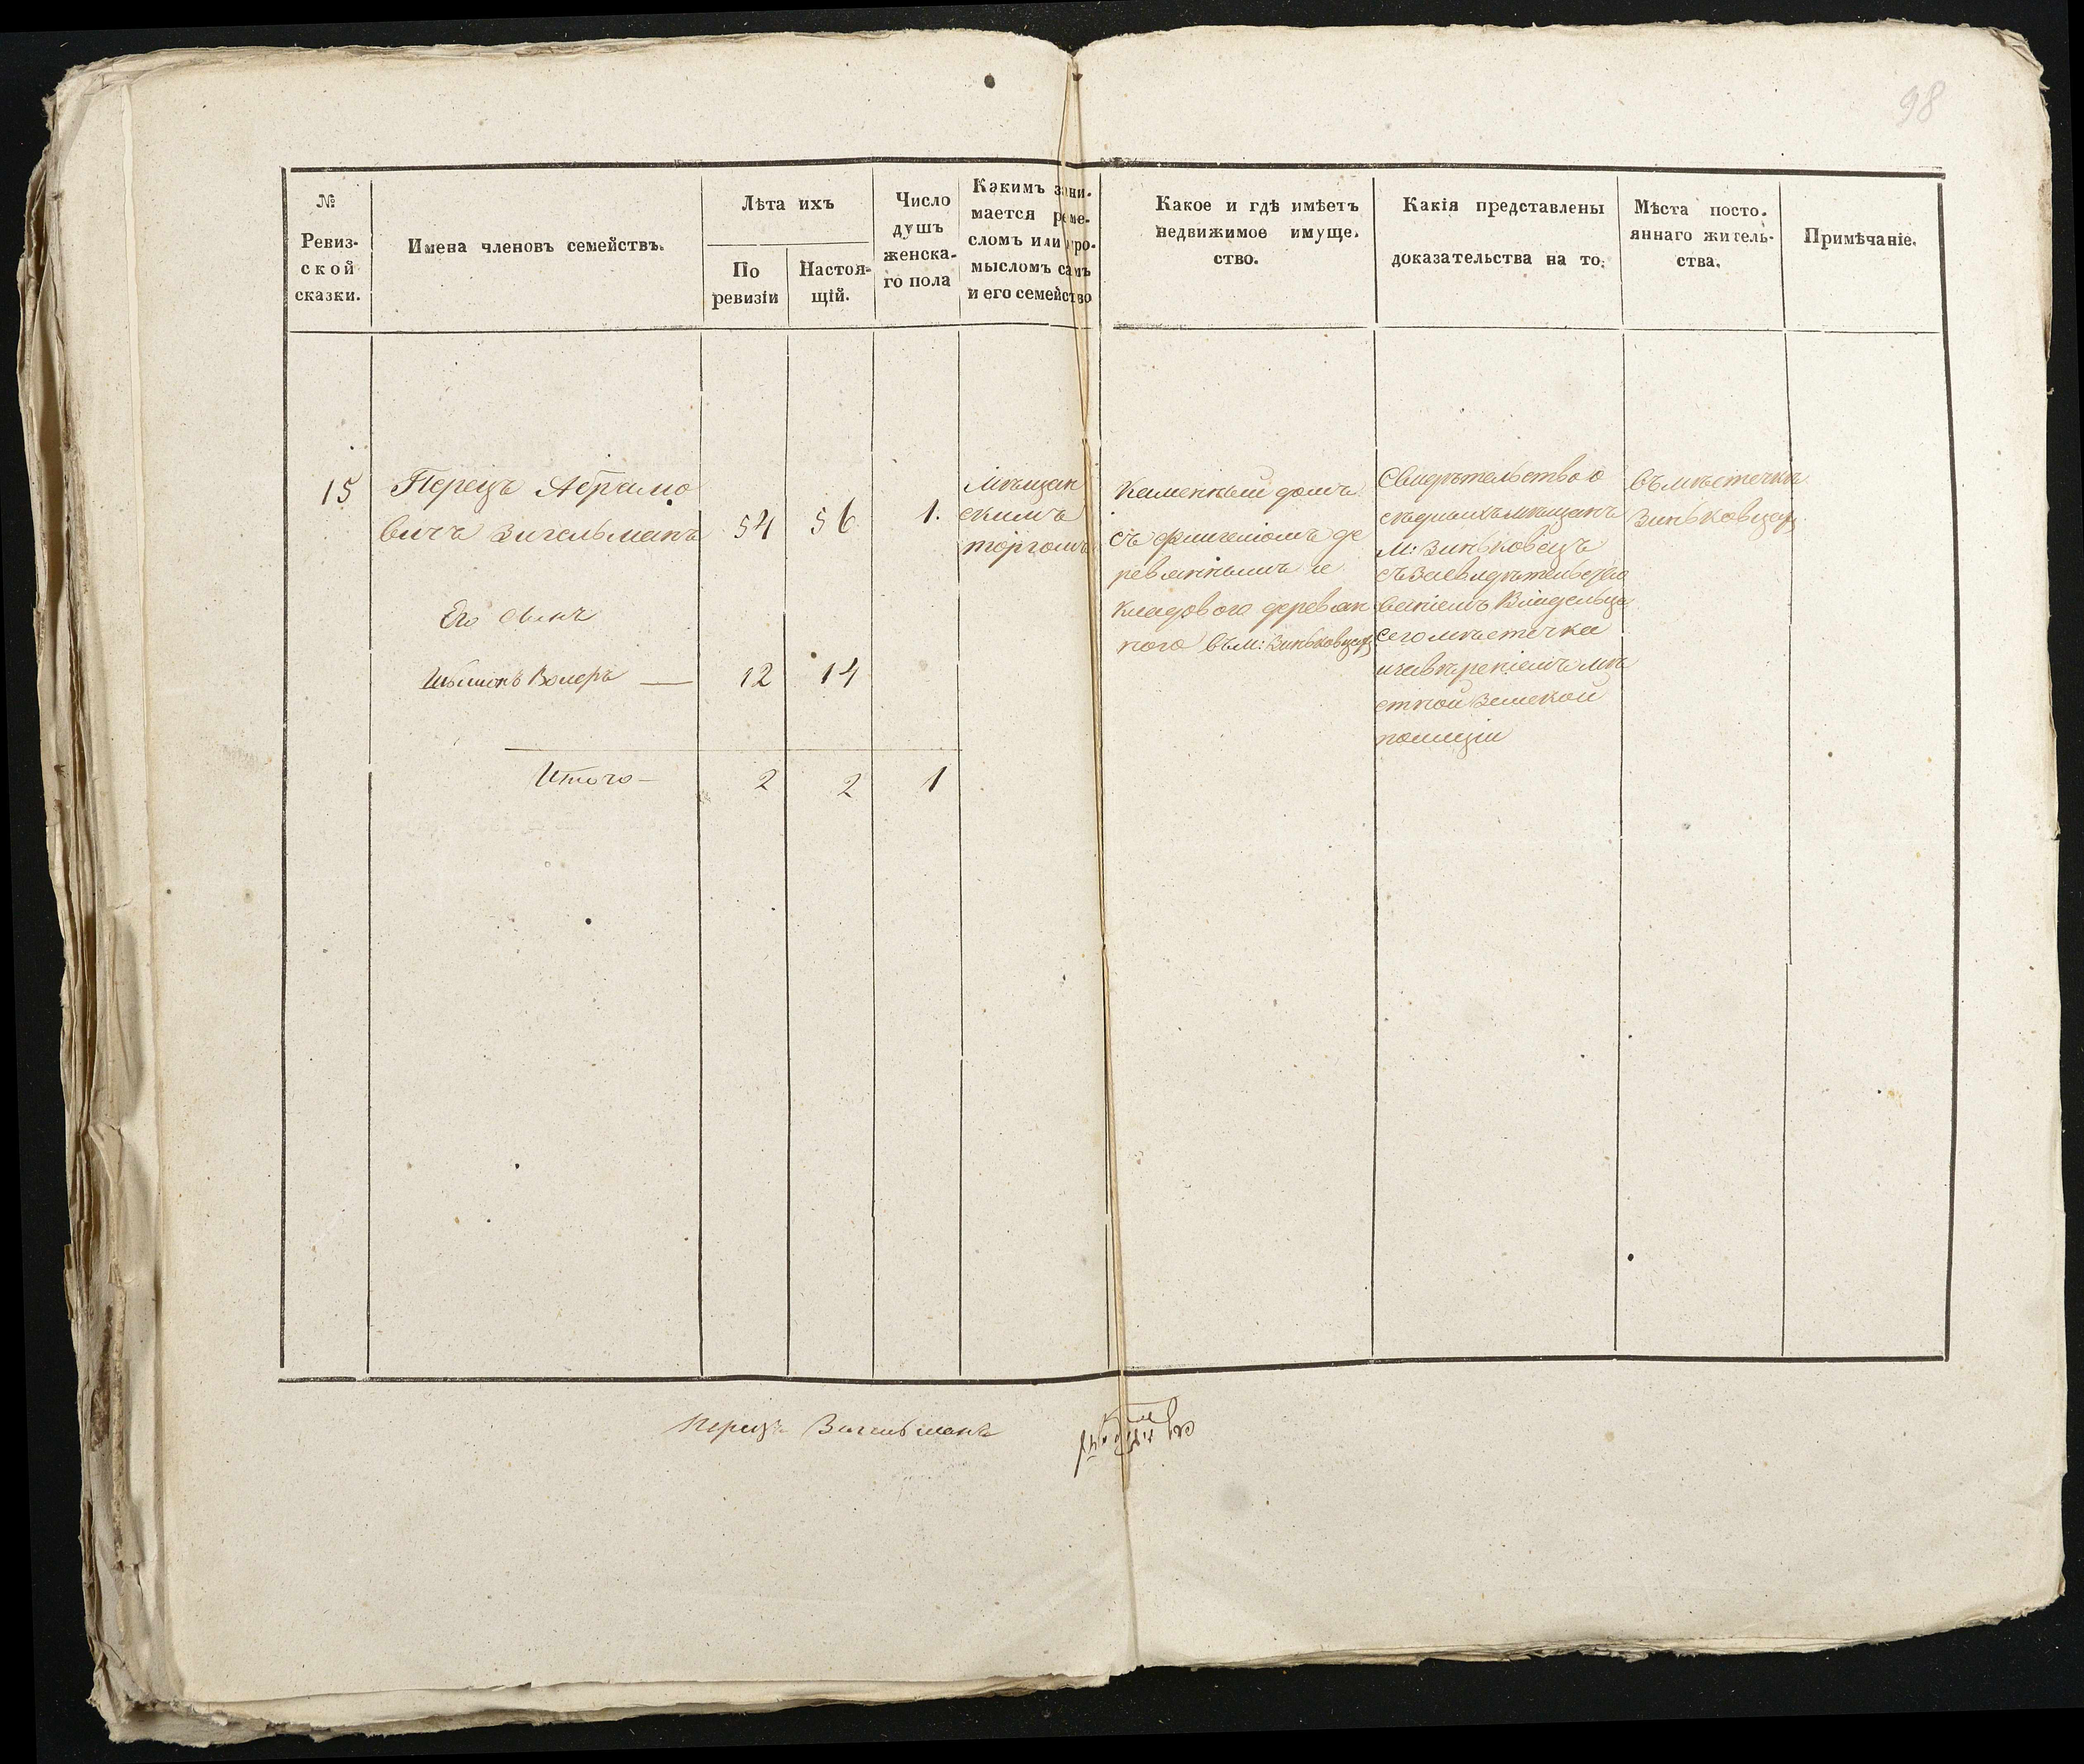 98
№
Ревиз-
ской
сказки.
Имена членовъ семействъ.
Лѣта ихъ
По
ревизіи
Настоя-
щій.
Число
душъ
женска-
го пола
Какимъ зани-
мается реме-
сломъ или про-
мысломъ самъ
и его семейство
Какое и гдѣ имѣетъ
недвижимое имуще-
ство.
Какія представлены
доказательства на то.
Мѣста посто-
яннаго житель-
ства.
Примѣчаніе.
15
Перецъ Абрамо
вичъ Зигельманъ
54
56
1.
Мѣщан
скимъ
торгомъ
Каменный домъ
съ флигеліомъ де
ревяннымъ и
кладового деревян
ного въ м: Зиньковцахъ
Свидѣтельство о
седмихъ мѣщанъ
м: Зиньковецъ
съ засвидѣтельство
ваніемъ Владельца
сего мѣстечка
и завѣреніемъ мѣ
стной Земской
полиціи
въ мѣстечкѣ
Зиньковцахъ
Его сынъ
12
14
Итого
2
2
1
Перецъ Зигельманъ